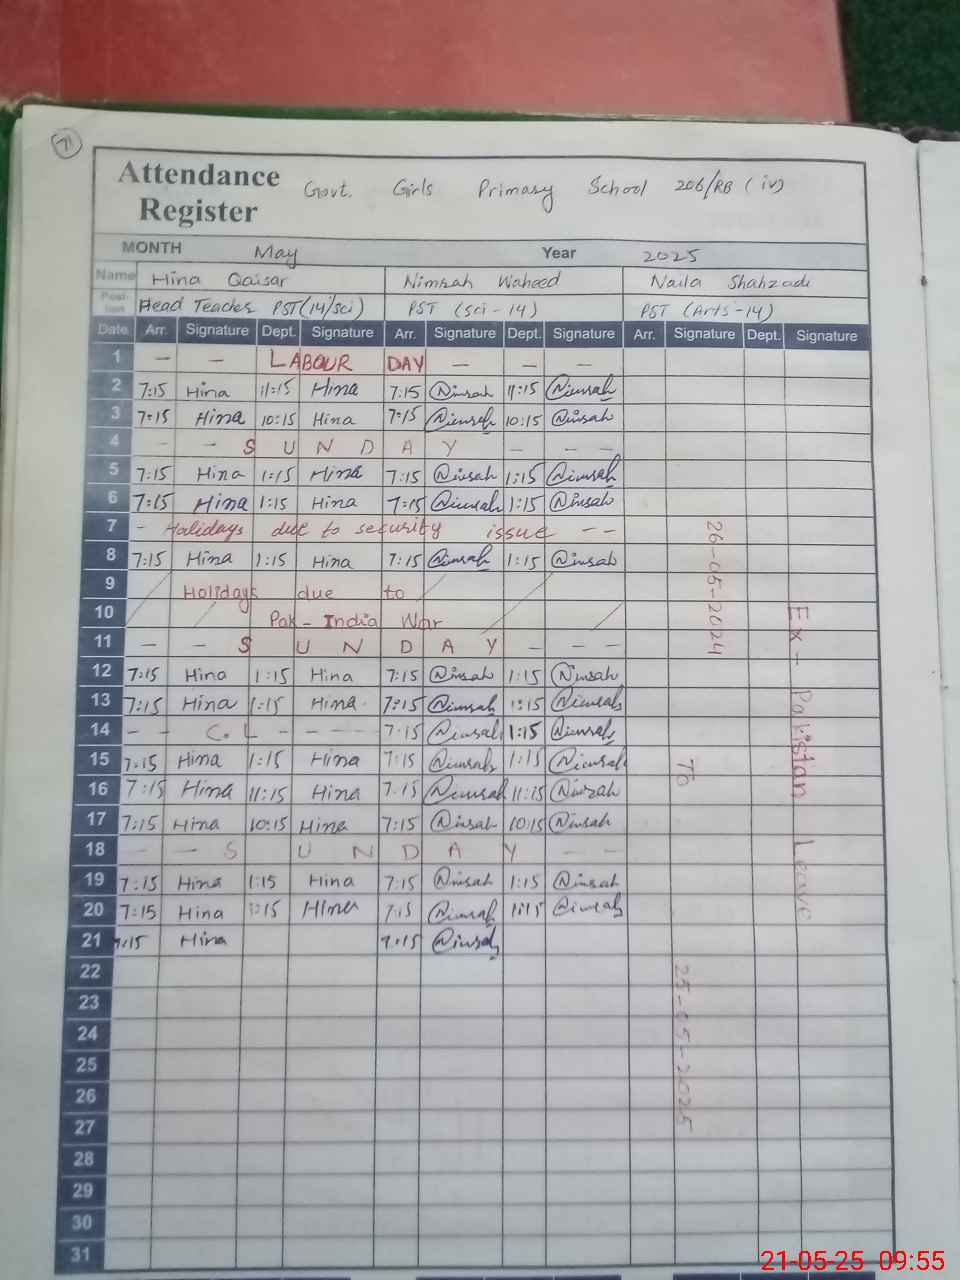 71
Attendance Register Govt. Girls Primary School 206/RB (iv)
MONTH May Year 2025
Name Hina Qaisar Nimrah Waheed Naila Shahzadi
Position Head Teacher PST(14/sci) PST (Sci-14) PST (Arts-14)
Date Arr. Signature Dept. Signature Arr. Signature Dept. Signature Arr. Signature Dept. Signature
1 — — LABOUR DAY — — —
2 7:15 Hina 11:15 Hina 7:15 Nimrah 11:15 Nimrah
3 7:15 Hina 10:15 Hina 7:15 Nimrah 10:15 Nimrah
4 - - SUNDAY - - -
5 7:15 Hina 1:15 Hina 7:15 Nimrah 1:15 Nimrah
6 7:15 Hina 1:15 Hina 7:15 Nimrah 1:15 Nimrah
7 - Holidays due to security issue --
8 7:15 Hina 1:15 Hina 7:15 Nimrah 1:15 Nimrah
9 Holidays due to
10 Pak-India War
11 — — SUNDAY — — —
12 7:15 Hina 1:15 Hina 7:15 Nimrah 1:15 Nimrah
13 7:15 Hina 1:15 Hina 7:15 Nimrah 1:15 Nimrah
14 - - C.L - ---- 7:15 Nimrah 1:15 Nimrah
15 7:15 Hina 1:15 Hina 7:15 Nimrah 1:15 Nimrah
16 7:15 Hina 11:15 Hina 7:15 Nimrah 11:15 Nimrah
17 7:15 Hina 10:15 Hina 7:15 Nimrah 10:15 Nimrah
18 - - SUNDAY - -
19 7:15 Hina 1:15 Hina 7:15 Nimrah 1:15 Nimrah
20 7:15 Hina 1:15 Hina 7:15 Nimrah 1:15 Nimrah
21 7:15 Hina 7:15 Nimrah
22
23
24
25
26
27
28
29
30
31
Ex-Pakistan Leave
26-05-2024 To 25-05-2025
21-05-25 09:55